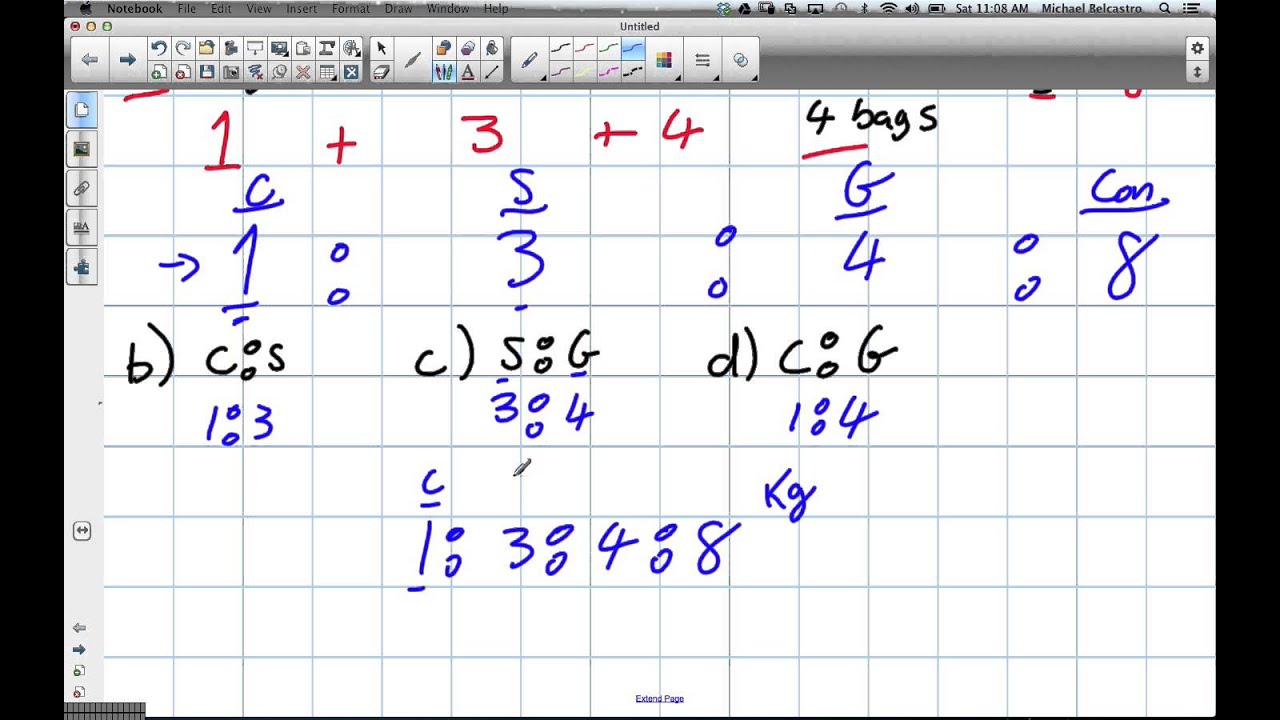 Notebook File Edit View Insert Format Draw Window Help Sat 11:08 AM Michael Belcastro
Untitled
1 + 3 + 4 4 bags
C S G Con.
→ 1 : 3 : 4 : 8
b) C:S c) S:G d) C:G
1:3 3:4 1:4
C Kg
1: 3:4:8
Extend Page